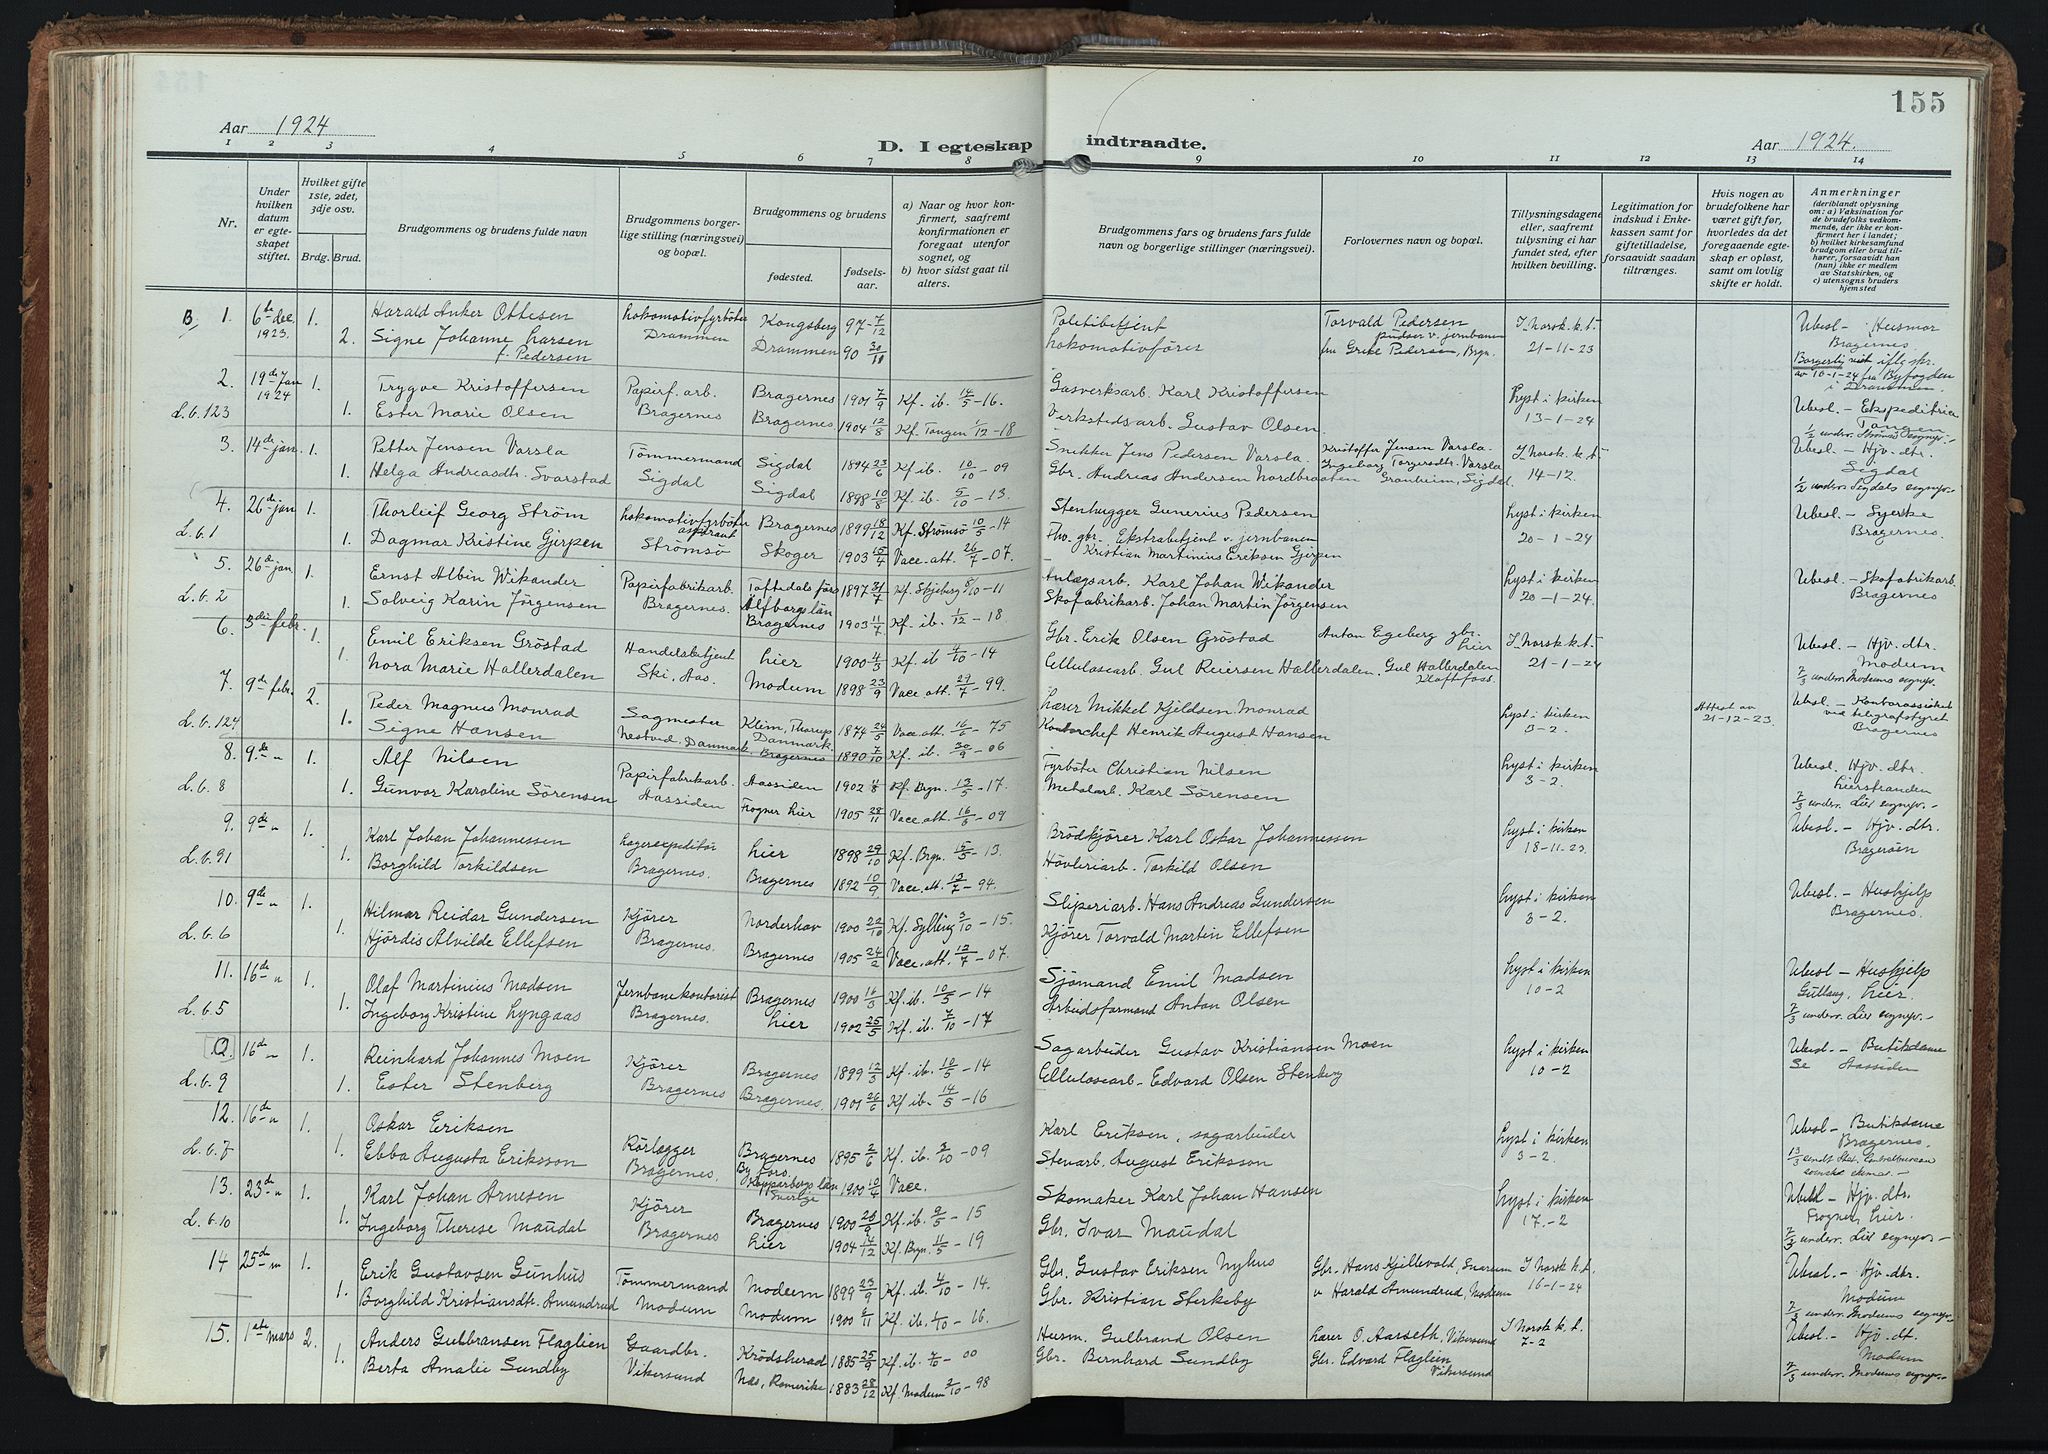 155
Aar 1924
D. Iegteskap indtraadte.
Aar 1924.
1 2 3 4 5 6 7 8 9 10 11 12 13 14
Nr.
Under hvilken datum er egteskapet stiftet.
Hvilket gifte 1ste, 2det, 3dje osv.
Brdg. Brud.
Brudgommens og brudens fulde navn
Brudgommens borgerlige stilling (næringsvei) og bopæl.
Brudgommens og brudens
fødested.
fødselsaar.
a) Naar og hvor konfirmert, saafremt konfirmationen er foregaat utenfor sognet, og
b) hvor sidst gaat til alters.
Brudgommens fars og brudens fars fulde navn og borgerlige stillinger (næringsvei).
Forlovernes navn og bopæl.
Tillysningsdagene eller, saafremt tillysning ei har fundet sted, efter hvilken bevilling.
Legitimation for indskud i Enkekassen samt for giftetilladelse, forsaavidt saadan tiltrænges.
Hvis nogen av brudefolkene har været gift før, hvorledes da det foregaaende egteskap er opløst, samt om lovlig skifte er holdt.
Anmerkninger (deriblandt oplysning om: a) Vaksination for de brudefolks vedkommende, der ikke er konfirmert her i landet; b) hvilket kirkesamfund brudgom eller brud tilhører, forsaavidt han (hun) ikke er medlem av Statskirken, og c) utensogns bruders hjemsted
B 1. 6te dec. 1923. 1. Harald Anker Ottesen Lokomotivfyrbøter Kongsberg 97 7/12 Politibetjent Torvald Pedersen pudser v. jernbanen I. norsk. k. t. Ubesl. - Husmor
2. Signe Johanne Larsen f. Pedersen Drammen Drammen 90 30/10 Lokomotivfører fru Grete Pedersen, Brgn. 21-11-23 Bragernes
Borgerlig viet ifle skr. av 16-1-24 fra Byfogden i Drammen
2. 19de Jan 1924 1. Trygve Kristoffersen Papirf. arb. Bragernes 1901 7/9 Kf. ib. 14/5 - 16. Gasverksarb. Karl Kristoffersen Lyst i kirken Ubesl. - Ekspeditrice
L. b. 123 1. Ester Marie Olsen Bragernes Bragernes 1904 12/8 Kf. Tangen 1/12 - 18 Verkstedsarb. Gustav Olsen 13-1-24 Tangen
3. 14de jan. 1. Petter Jensen Varsla Tømmermand Sigdal 1894 23/6 Kf ib. 10/10 - 09 Snekker Jens Pedersen Varsla. Kristoffer Jensen Varsla. I. norsk. k. t. Ubesl. - Hjv. dtr.
1. Helga Andreasdt. Svarstad Sigdal Sigdal 1898 10/8 Kf. ib. 5/10 - 13. Gbr. Andreas Andersen Nordbraaten Ingeborg Torgersdtr. Varsla Granheim, Sigdal 14-12. Sigdal
1/2 underr. Sigdals sognepr. -
4. 26de jan 1. Thorleif Georg Strøm Lokomotivfyrbøter aspirant Bragernes 1899 18/12 Kf. Strømsø 10/5 - 14 Stenhugger Gunerius Pedersen Lyst i kirken Ubesl. - Syerske
L. b. 1 1. Dagmar Kristine Gjerpen Strømsø Skoger 1903 15/4 Vacc. att. 26/7 - 07. Fhv. gbr. Ekstrabetjent v. jernbanen Kristian Martinius Eriksen Gjerpen 20-1-24 Bragernes.
5. 26de jan 1. Ernst Albin Wikander Papirfabrikarb. Toftedals förs Älfborgs län 1897 31/7 Kf. Skjeberg 8/10 - 11 Anlægsarb. Karl Johan Wikander Lyst i kirken Ubesl. - Skofabrikarb.
L. b. 2 1. Solveig Karin Jørgensen Bragernes. Bragernes 1903 11/7 Kf. ib. 1/12 - 18 Skofabrikarb. Johan Martin Jørgensen 20-1-24. Bragernes
6. 3die febr. 1. Emil Eriksen Grøstad Handelsbetjent Lier 1900 4/3 Kf. ib 4/10 - 14 Gbr. Erik Olsen Grøstad Anton Egeberg gbr. Lier I. norsk k. t. Ubesl. - Hjv. dtr.
1. Nora Marie Hallerdalen Ski, Aas. Modum 1898 23/9 Vacc. att. 29/7 - 99. Cellulosearb. Gul Reiersen Hallerdalen. Gul Hallerdalen Kloftfoss. 21-1-24 Modum
7/3 underr. Modums sognepr.
7. 9de febr. 2. Peder Magnus Monrad Sagmester Kleim, Thorup Danmark 1874 24/5 Vacc. att. 16/6 - 75 Lærer Mikkel Kjeldsen Monrad Lyst i kirken Attest av 21-12-23. Ubesl. - Kontorassistent ved telegrafstyret
L. b. 124 1. Signe Hansen Nestved. Danmark. Bragernes 1890 7/10 Kf. ib. 30/9 - 06 Kontorchef Henrik August Hansen 3-2. Bragernes
8. 9de " 1. Alf Nilsen Papirfabrikarb. Aassiden 1902 4/8 Kf. Brgn. 13/5 - 17. Fyrbøter Christian Nilsen Lyst i kirken Ubesl. Hjv. dtr.
L. b. 8 1. Gunvor Karoline Sørensen Aassiden Frogner Lier 1905 28/11 Vacc. att. 16/3 - 09 Metalarb. Karl Sørensen 3-2. Lierstranden
7/3 underr. Lier sognepr. -
9. 9de " 1. Karl Johan Johannessen Lagerexpeditør Lier 1898 29/10 Kf. Brgn. 15/5 - 13. Brødkjører Karl Oskar Johannesson Lyst i kirken Ubesl. - Hjv. dtr.
L. b. 91 1. Borghild Torkildsen Bragernes. Bragernes 1892 10/9 Vacc. att. 13/7 - 94. Høvleriarb. Torkild Olsen 18-11-23. Bragerøen
10. 9de " 1. Hilmar Reidar Gundersen Kjører Norderhov 1900 20/10 Kf. Sylling 3/10 - 15. Sliperiarb. Hans Andreas Gundersen Lyst i kirken Ubesl. - Hushjelp
L. b. 6 1. Hjørdis Alvilde Ellefsen Bragernes. Bragernes 1905 24/2 Vacc. att. 12/7 - 07. Kjører Torvald Martin Ellefsen 3-2. Bragernes.
11. 16de " 1. Olaf Martinius Madsen Jernbanekontorist Bragernes 1900 16/3 Kf. ib. 10/5 - 14 Sjømand Emil Madsen Lyst i kirken Ubesl - Hushjelp
L. b. 5 1. Ingeborg Kristine Lyngaas Bragernes. Lier 1902 25/5 Kf. ib. 7/10 - 17 Arbeidsformand Anton Olsen 10-2 Gullaug, Lier.
7/3 underr. Lier sognepr. -
Q. 16de " 1. Reinhard Johannes Moen Kjører Bragernes 1899 12/5 Kf. ib. 10/5 - 14 Sagarbeider Gustav Kristiansen Moen Lyst i kirken Ubesl - Butikdame
L. b. 9 1. Ester Stenberg Bragernes Bragernes. 1901 26/6 Kf ib. 14/5 - 16 Cellulosearb. Edvard Olsen Stenberg 10-2 Aassiden
12. 16de " 1. Oskar Eriksen Rørlægger Bragernes 1895 2/6 Kf. ib. 3/10 - 09 Karl Eriksen, sagarbeider Lyst i kirken Ubesl - Butikdame
L. b. 7 1. Ebba Augusta Eriksson Bragernes. By fors. Kopparbergs län Sverige 1900 10/4 Vacc. Stenarb. August Eriksson 3-2. Bragernes.
13. 23de " 1. Karl Johan Arnesen Kjører Bragernes 1900 28/9 Kf. ib. 9/5 - 15 Skomaker Karl Johan Hansen Lyst i kirken Ubesl - Hjv. dtr.
L. b. 10 1. Ingeborg Therese Maudal Bragernes Lier 1904 14/12 Kf. Brgn. 11/5 - 19 Gbr. Ivar Maudal 17.-2 Frogner, Lier.
7/3 underr. Lier sognepr -
14 25de " 1. Erik Gustavsen Gunhus Tømmermand Modum 1899 23/9 Kf. ib. 4/10 - 14. Gbr. Gustav Eriksen Nyhus Gbr. Hans Kjillevold, Snarum I. norsk k. t. Ubesl. - Hjv. dtr.
1. Borghild Kristiansdt. Amundrud Modum Modum 1900 9/11 Kf. ib. 1/10 - 16. Gbr. Kristian Sterkeby " Harald Amundrud, Modum 16-1-24 Modum
7/3 underr. Modums sognepr.
15. 1ste mars 2. Anders Gulbransen Flaglien Gaardbr. Krødsherad 1885 25/9 Kf. ib. 7/10 - 00 Husm. Gulbrand Olsen Lærer O. Aarseth, Vikersund I. norsk k. t. Ubesl. - Hjv. dt.
1. Berta Amalie Sundby Vikersund Nes, Romerike 1883 28/12 Kf. Modum 2/10 - 98 Gbr. Bernhard Sundby Gbr. Edvard Flaglien Vikersund 7-2 Modum
7/3 underr. Modums sognepr. -